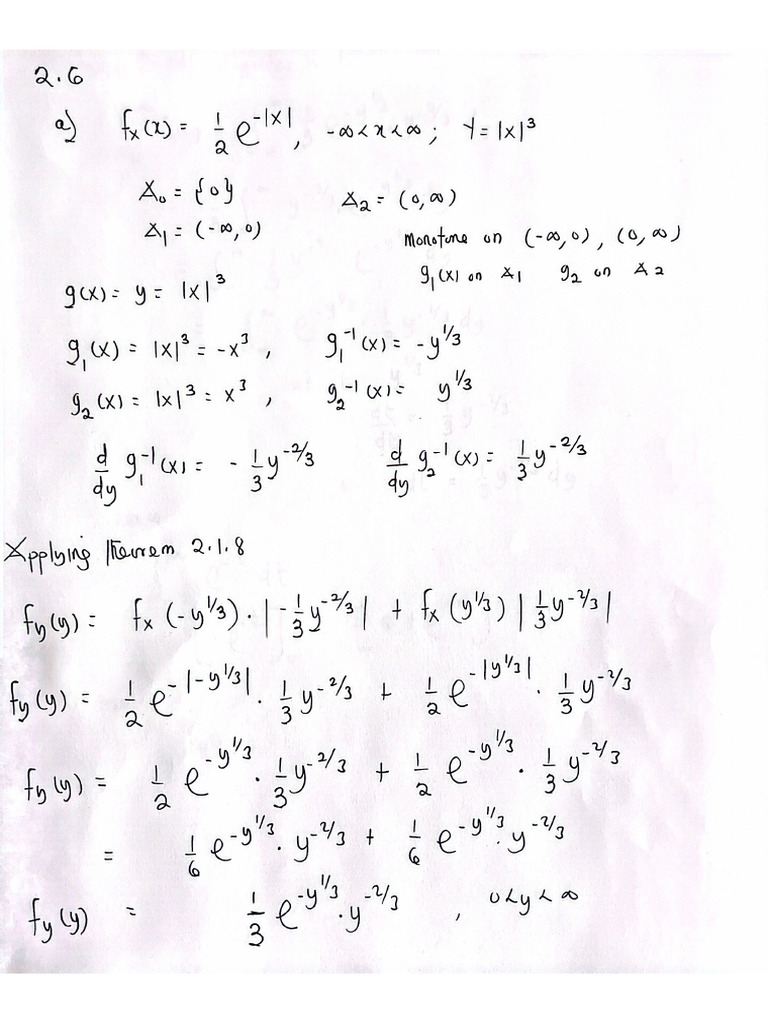 2.6
a) fx(x) = 1/2 e^-|x|, -∞<x<∞; Y=|x|^3
A₀ = {0} A₂ = (0, ∞)
A₁ = (-∞, 0)
monotone on (-∞, 0), (0, ∞)
g₁(x) on A₁ g₂ on A₂
g(x) = y = |x|^3
g₁(x) = |x|^3 = -x^3, g₁^-1(x) = -y^1/3
g₂(x) = |x|^3 = x^3, g₂^-1(x) = y^1/3
d/dy g₁^-1(x) = -1/3 y^-2/3 d/dy g₂^-1(x) = 1/3 y^-2/3
Applying Theorem 2.1.8
fy(y) = fx(-y^1/3)·|-1/3 y^-2/3| + fx(y^1/3)|1/3 y^-2/3|
fy(y) = 1/2 e^-|-y^1/3| · 1/3 y^-2/3 + 1/2 e^-|y^1/3| · 1/3 y^-2/3
fy(y) = 1/2 e^-y^1/3 · 1/3 y^-2/3 + 1/2 e^-y^1/3 · 1/3 y^-2/3
= 1/6 e^-y^1/3 · y^-2/3 + 1/6 e^-y^1/3 · y^-2/3
fy(y) = 1/3 e^-y^1/3 · y^-2/3, 0<y<∞